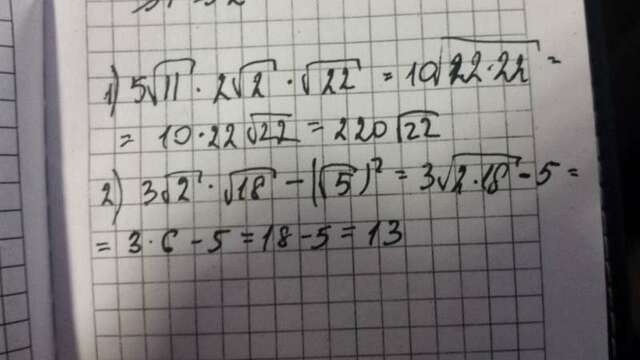 1) 5√11 · 2√2 · √22 = 10√22·22 =
= 10·22√22 = 220√22
2) 3√2 · √18 - (√5)² = 3√2·18 - 5 =
= 3·6 - 5 = 18 - 5 = 13